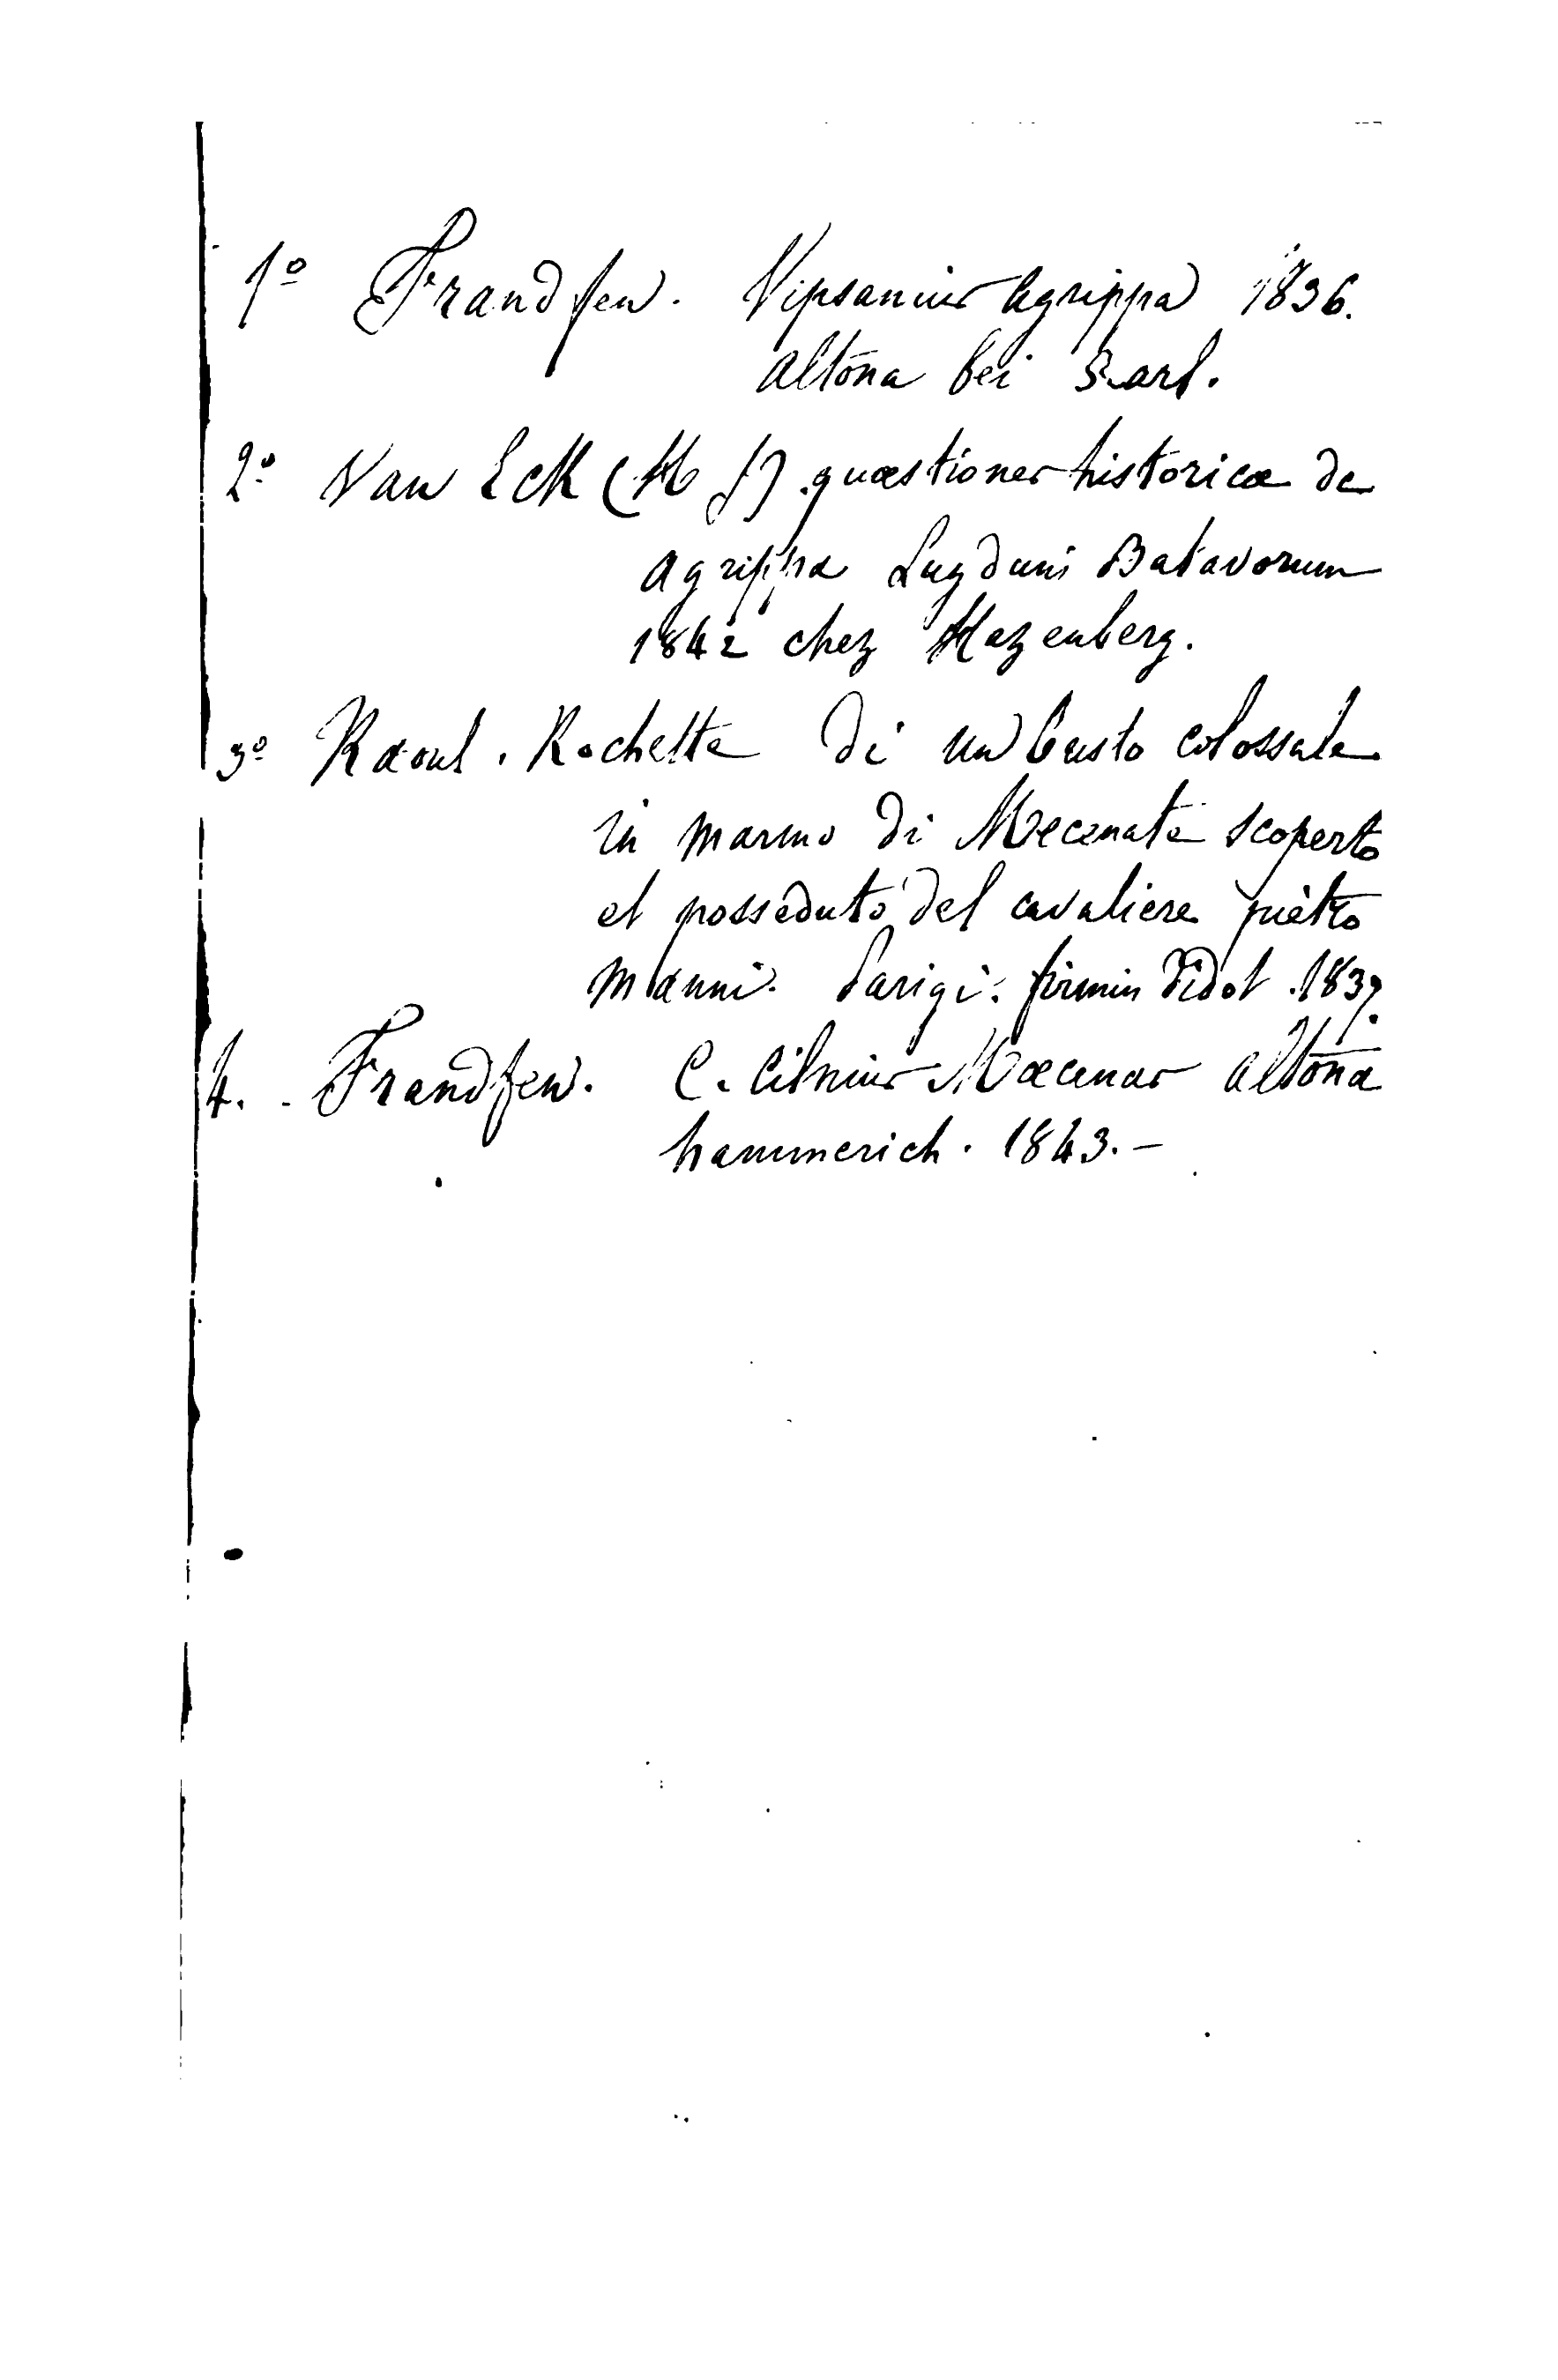 1º Frandsen. Vipsanius Agrippa 1836.
Altona bei Karl.
2º Van Eck (H J) quæstiones historicæ de
agrippa Lugduni Batavorum
1842 chez Hazenberg.
3º Raoul. Rochette Di un busto colossale
in marmo di Mecenate scoperto
et posseduto del cavaliere pietro
manni. Parigi. firmin Didot. 1837.
4. Frandsen. C. Cilnius Mæcenas altona
hammerich. 1843. -